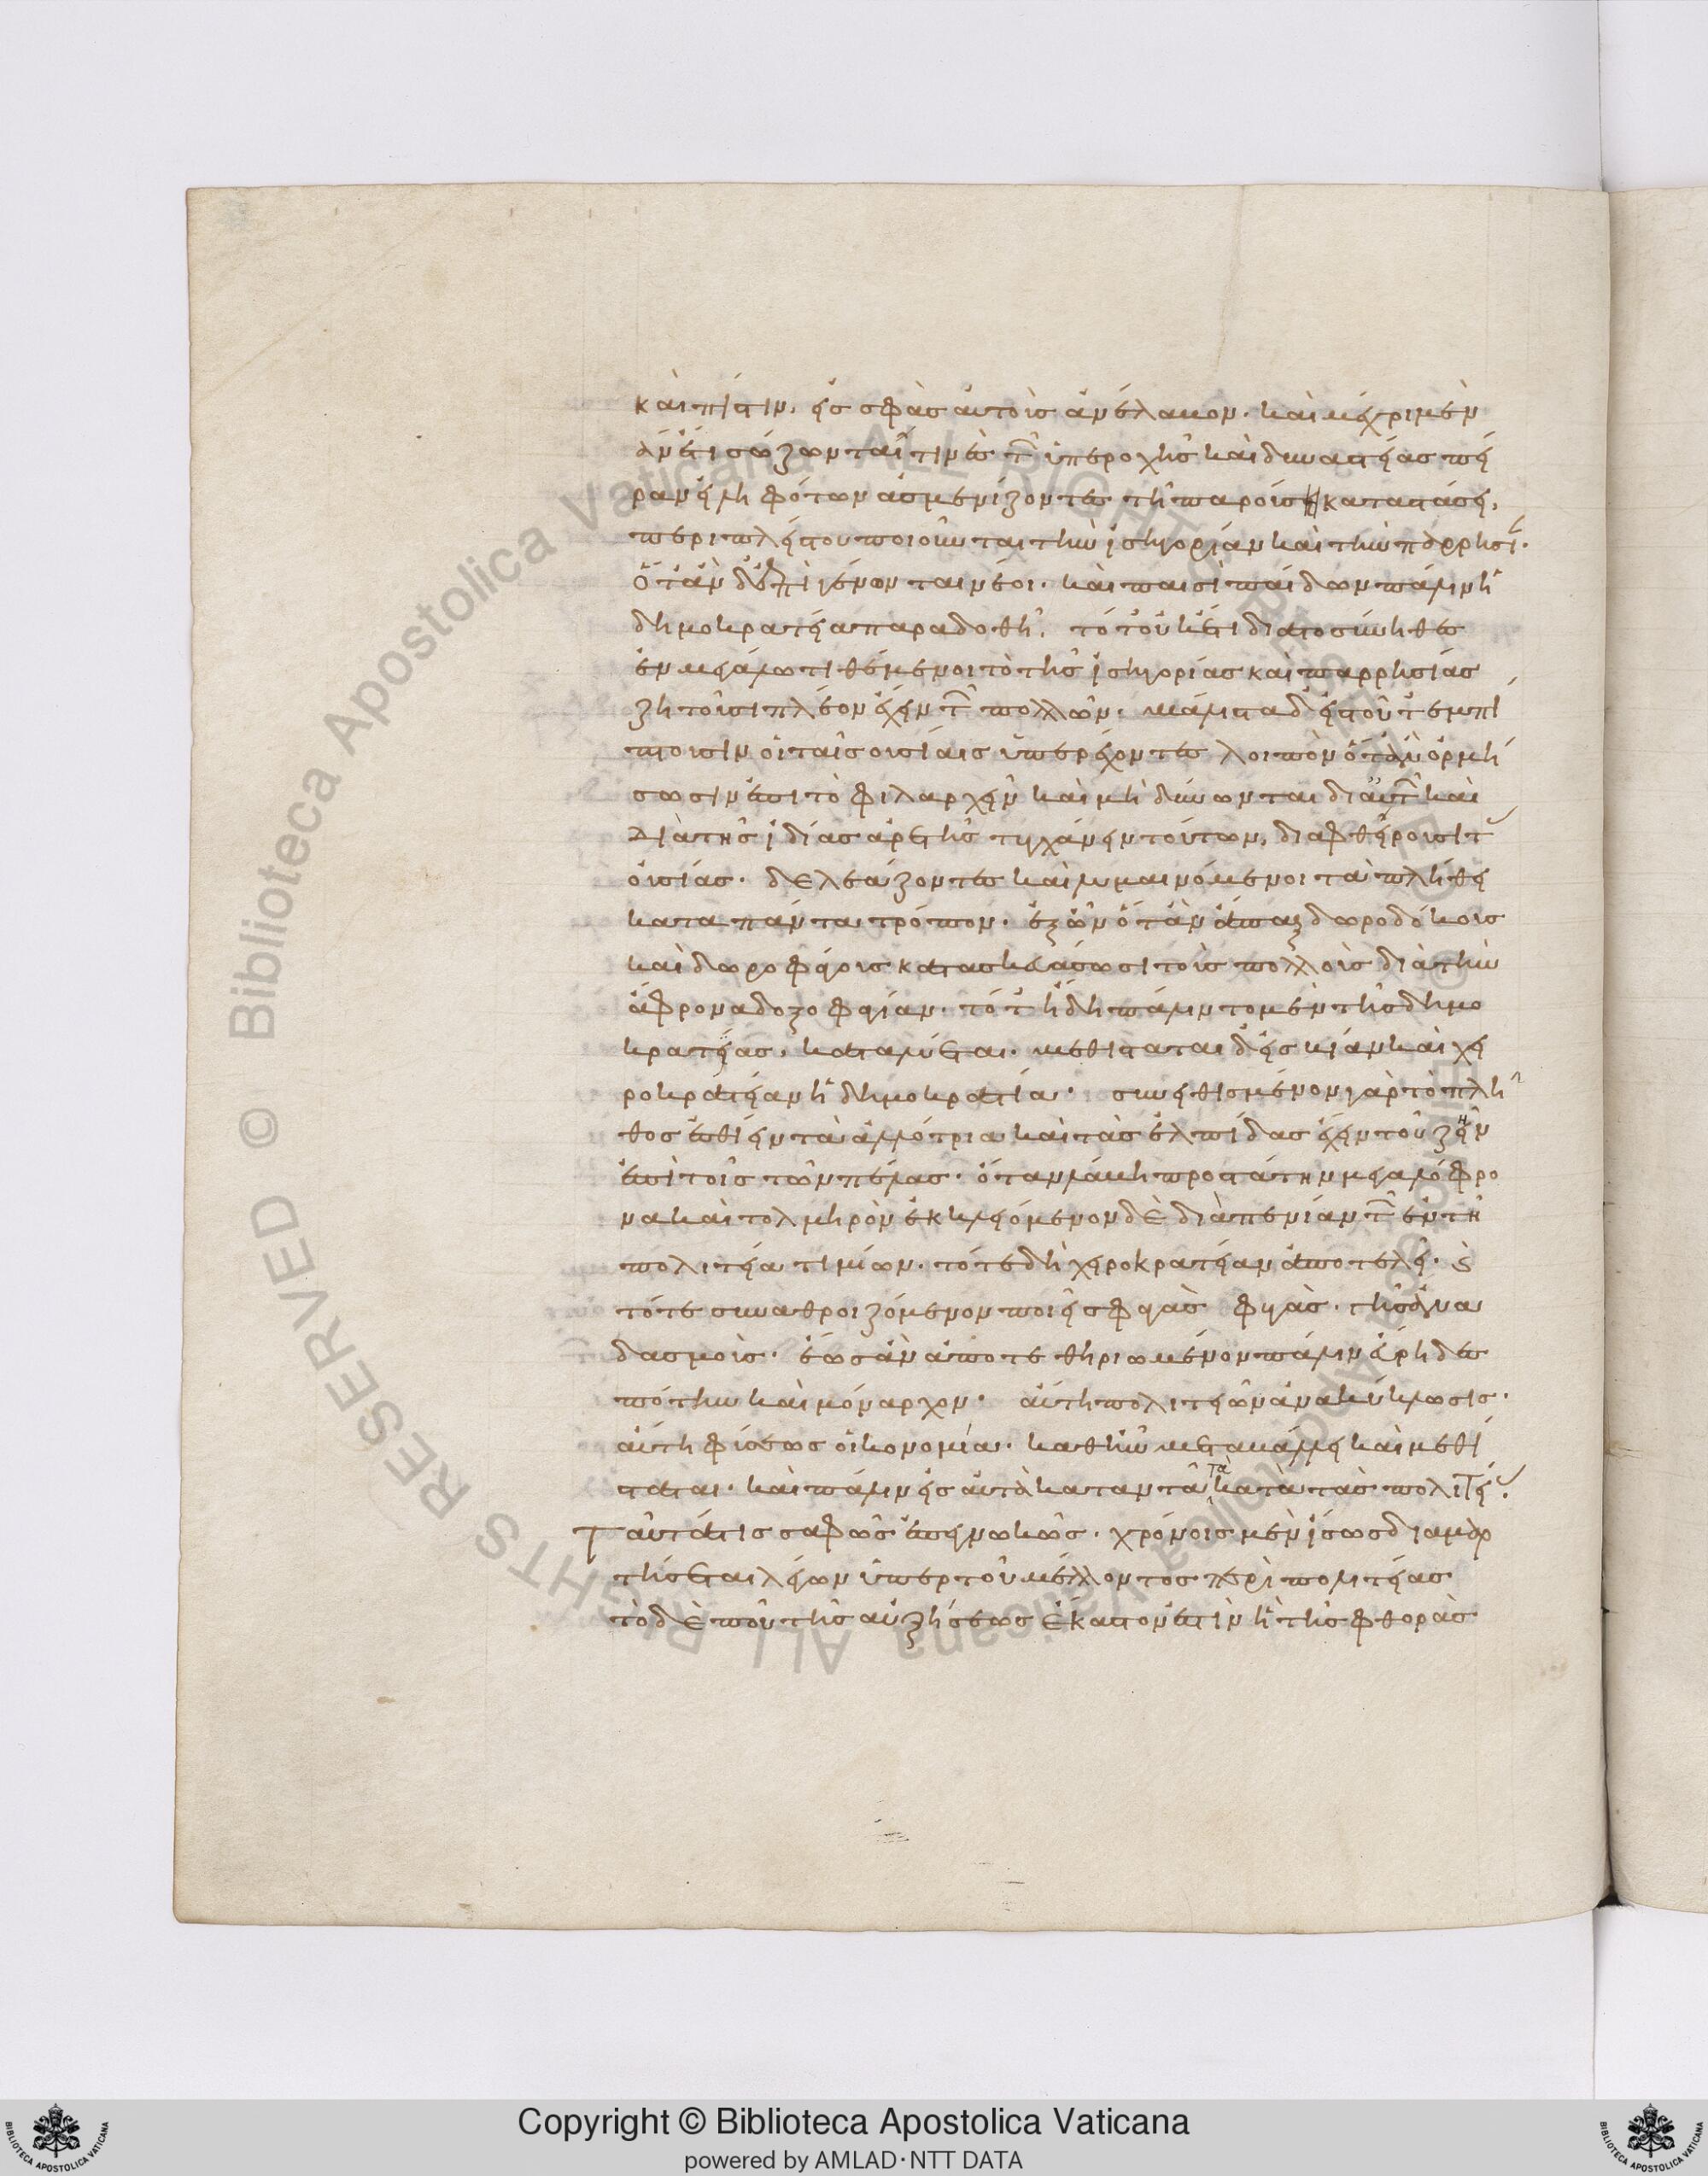 καὶ πίστιν, εἰς σφᾶς αὐτοὺς ἀνέλαβον. καὶ μέχρι μὲν
ἂν ἔτι σώζωνταί τινες τῶν ὑπεροχῆς καὶ δυναστείας πεῖ
ραν εἰληφότων ἀσμενίζοντες τῇ παρούσῃ καταστάσει,
περὶ πλείστου ποιοῦνται τὴν ἰσηγορίαν καὶ τὴν παρρησί.
ὅταν δ' ἐπιγένωνται νέοι. καὶ παισὶ παίδων πάλιν ἡ
δημοκρατεία παραδοθῇ, τότ' οὐκέτι διὰ τὸ σύνηθες
ἐν μεγάλῳ τιθέμενοι τὸ τῆς ἰσηγορίας καὶ παρρησίας
ζητοῦσι πλέον ἔχειν τῶν πολλῶν. μάλιστα δ' εἰς τοῦτ' ἐμπί
πτουσιν οἱ ταῖς οὐσίαις ὑπερέχοντες λοιπὸν ὅταν ὁρμή
σωσιν ἐπὶ τὸ φιλαρχεῖν καὶ μὴ δύνωνται δι' αὑτῶν καὶ
διὰ τῆς ἰδίας ἀρετῆς τυγχάνειν τούτων, διαφθείρουσι τὰς
οὐσίας. δελεάζοντες καὶ λυμαινόμενοι τὰ πλήθη
κατὰ πάντα τρόπον. ἐξ ὧν ὅταν ἅπαξ δωροδόκους
καὶ δωροφάγους κατασκευάσωσι τοὺς πολλοὺς διὰ τὴν
ἄφρονα δοξοφαγίαν. τότ' ἤδη πάλιν τὸ μὲν τῆς δημο
κρατείας, καταλύεται. μεθίσταται δ' εἰς βίαν καὶ χει
ροκρατείαν ἡ δημοκρατία. συνειθισμένον γὰρ τὸ πλῆ
θος ἐσθίειν τὰ ἀλλότρια καὶ τὰς ἐλπίδας ἔχειν τοῦ ζῆν
ἐπὶ τοῖς τῶν πέλας. ὅταν λάβῃ προστάτην μεγαλόφρο
να καὶ τολμηρὸν ἐκκλειόμενον δὲ διὰ πενίαν τῶν ἐν τῇ
πολιτείᾳ τιμίων. τότε δὴ χειροκρατείαν ἀποτελεῖ. καὶ
τότε συναθροιζόμενον ποιεῖ σφαγὰς φυγὰς. γῆς ἀνα
δασμούς. ἕως ἂν ἀποτεθηριωμένον πάλιν εὕρῃ δεσ
πότην καὶ μόναρχον. αὕτη πολιτειῶν ἀνακύκλωσις.
αὕτη φύσεως οἰκονομία. καθ' ἣν μεταβάλλει καὶ μεθί
σταται. καὶ πάλιν εἰς αὑτὰ καταντᾷ τὰ κατὰ τὰς πολιτείας.
Ταῦτά τις σαφῶς ἐπεγνωκὼς. χρόνοις μὲν ἴσως διαμαρ
τήσεται λέγων ὑπὲρ τοῦ μέλλοντος περὶ πολιτείας
τὸ δὲ ποῦ τῆς αὐξήσεως ἕκαστόν ἐστιν ἢ τῆς φθορᾶς
Copyright © Biblioteca Apostolica Vaticana
powered by AMLAD·NTT DATA